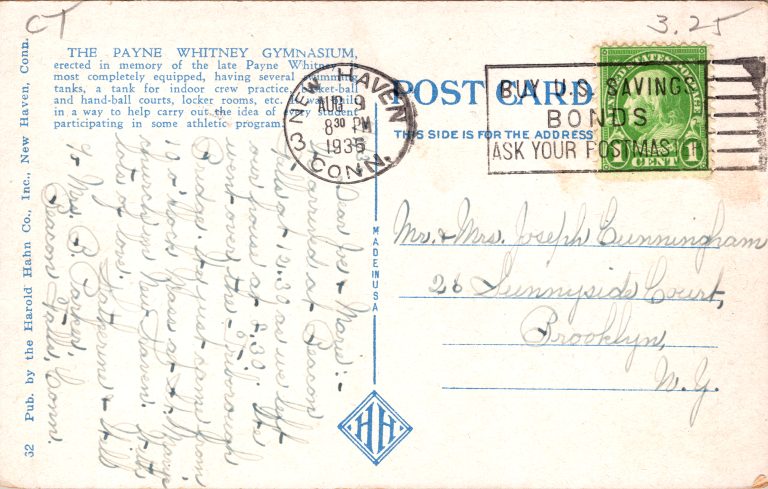 CT
3.25
THE PAYNE WHITNEY GYMNASIUM,
erected in memory of the late Payne Whitney
most completely equipped, having several swimming
tanks, a tank for indoor crew practice, basket-ball
and hand-ball courts, locker rooms, etc.
in a way to help carry out the idea of every student
participating in some athletic program.
NEW HAVEN
AUG 9
8 30 PM
1936
3 CONN.
POST CARD
THIS SIDE IS FOR THE ADDRESS
BUY U.S. SAVINGS
BONDS
ASK YOUR POSTMASTER
UNITED STATES POSTAGE
1 CENT 1
Dear Joe & Marie:-
Arrived at Beacon
Falls at 12.30 as we left
our house at 9.30. We
went over the Triborough
Bridge. It just came from
10 o'clock Mass at St. Mary's
church in New Haven. With
lots of love,
Katherine & Will
% Mrs. B.
Beacon Falls, Conn.
Mr. & Mrs. Joseph Cunningham
26 Sunnyside Court,
Brooklyn,
N.Y.
MADE IN USA
HH
32 Pub. by the Harold Hahn Co., Inc., New Haven, Conn.